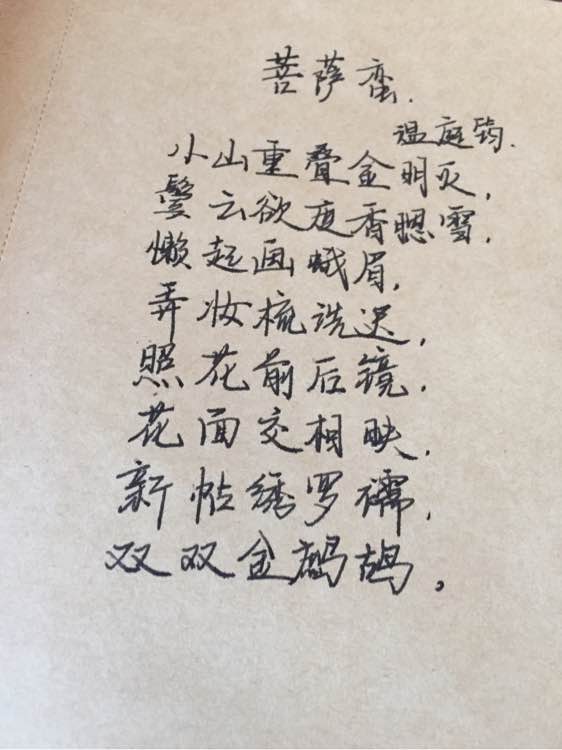 菩萨蛮.
温庭筠.
小山重叠金明灭,
鬓云欲度香腮雪,
懒起画蛾眉,
弄妆梳洗迟,
照花前后镜,
花面交相映,
新帖绣罗襦,
双双金鹧鸪。